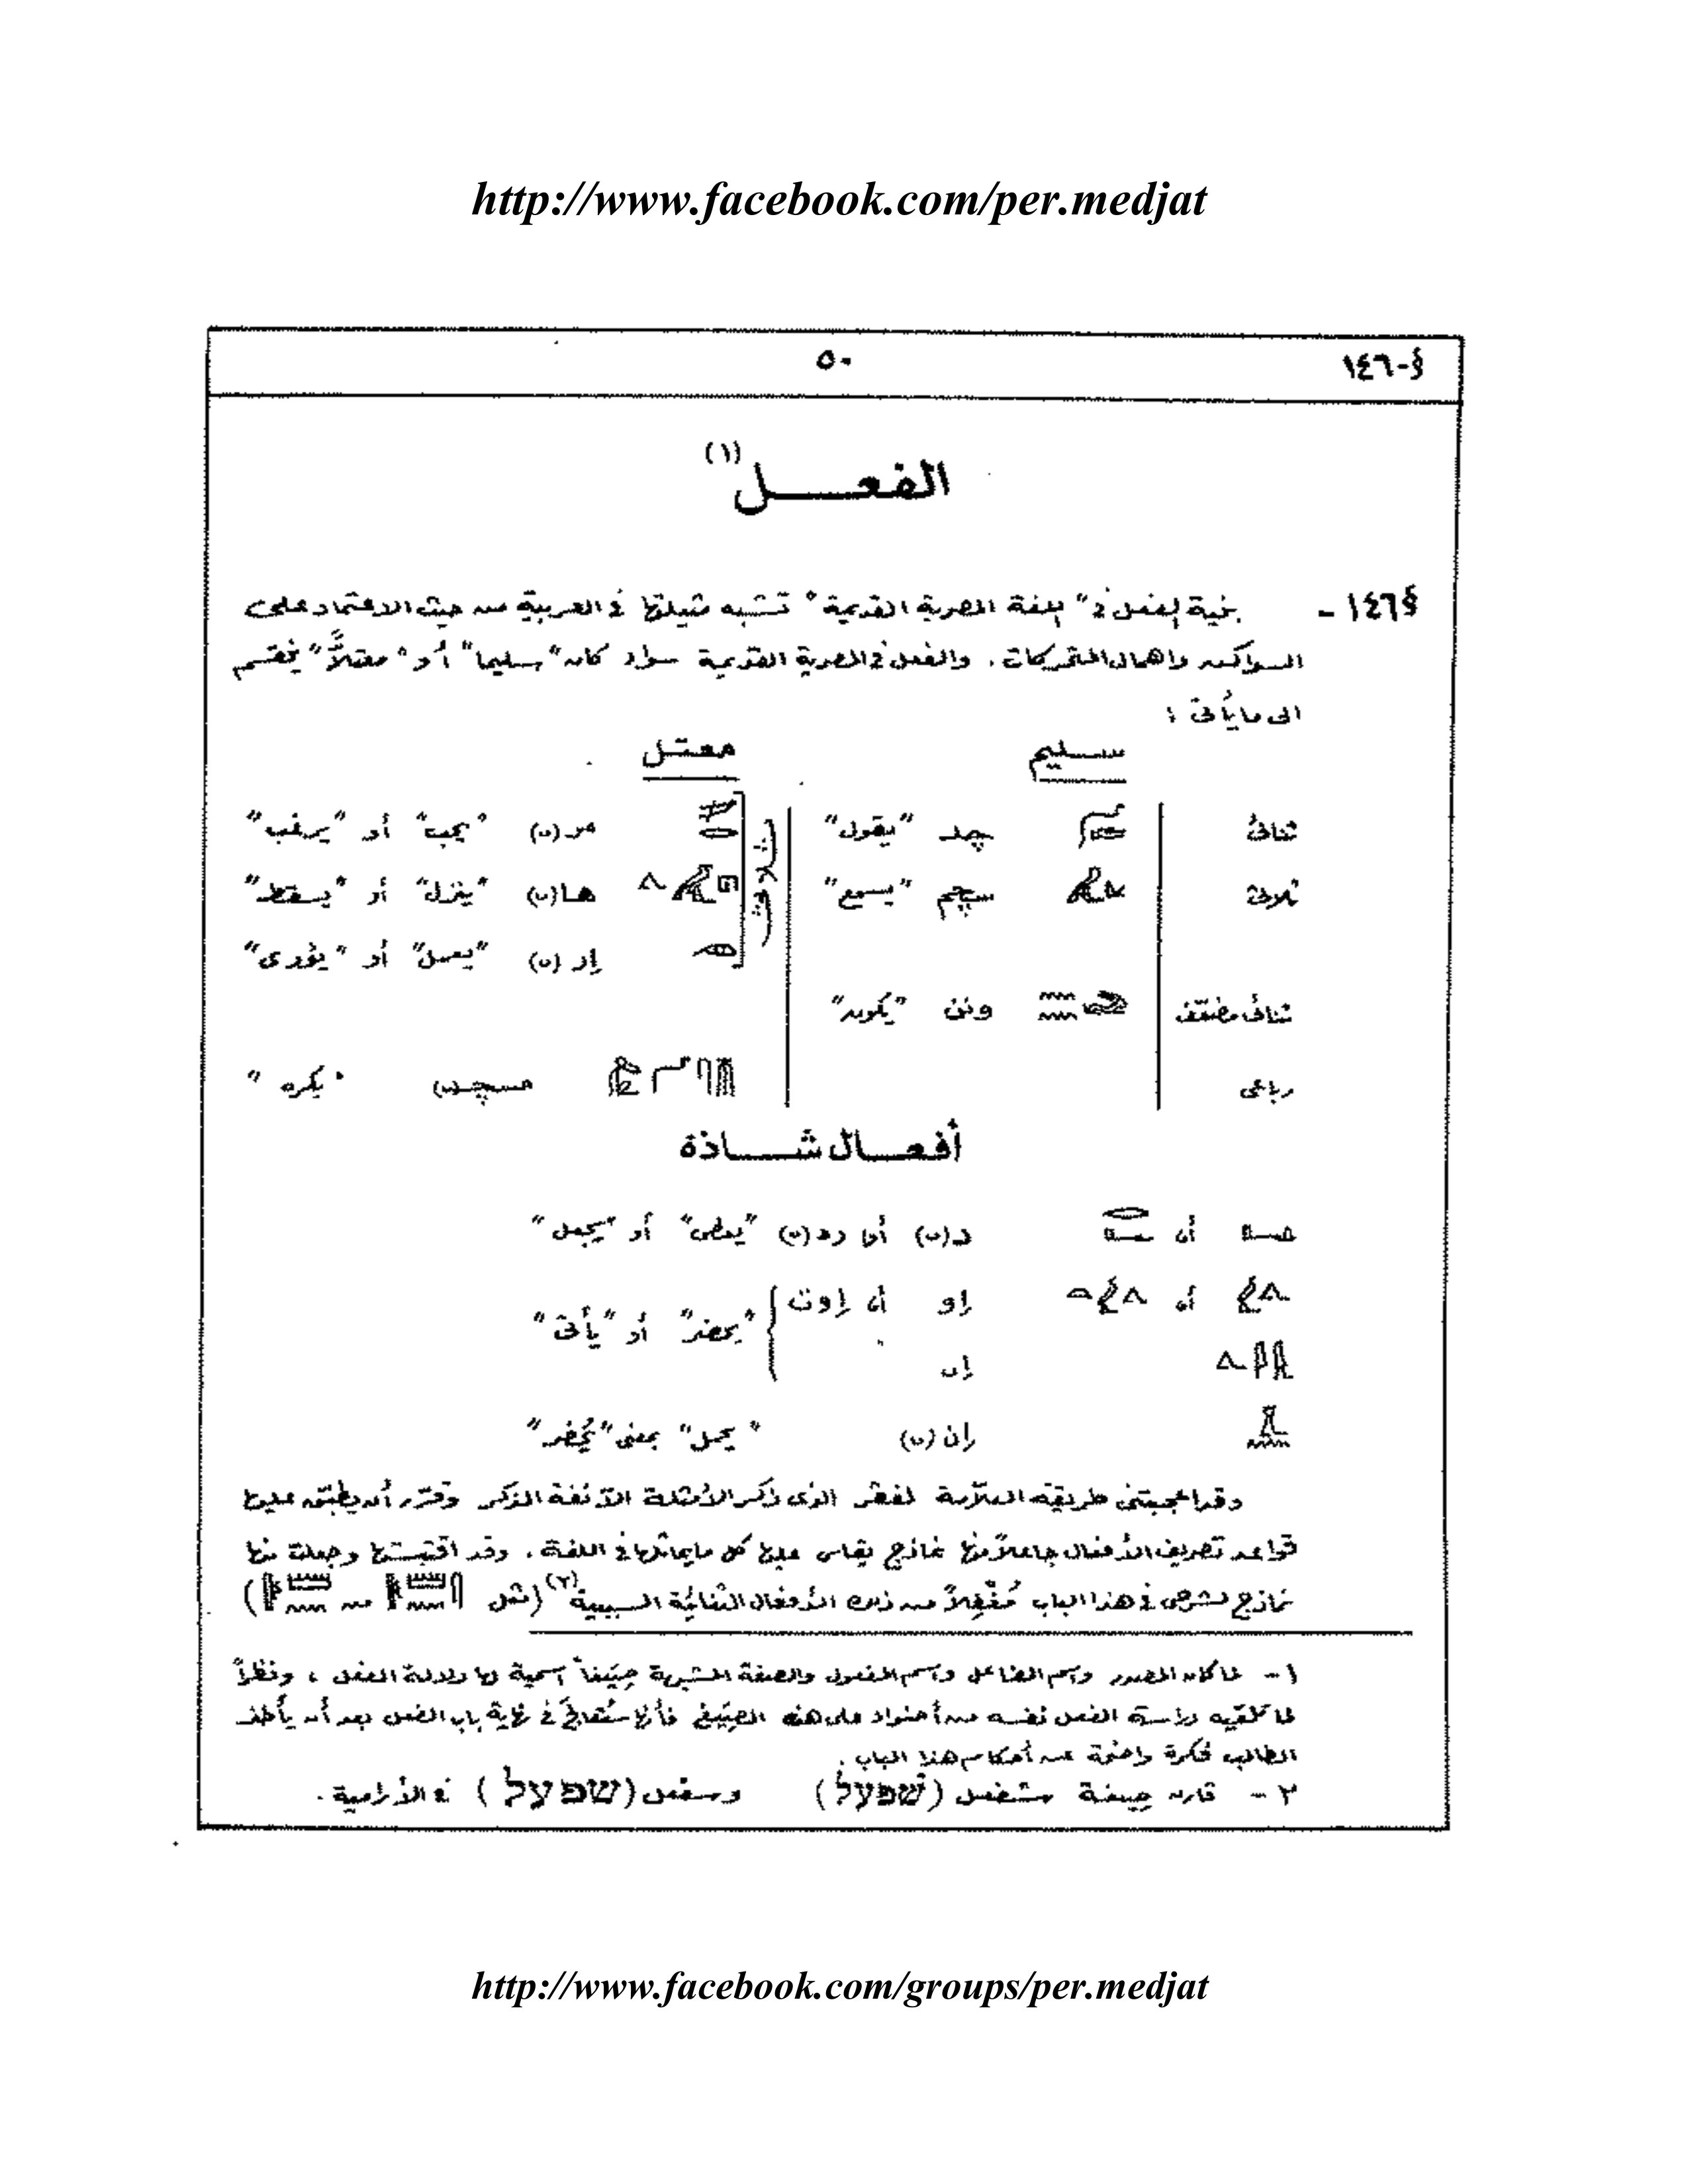 http://www.facebook.com/per.medjat
§-١٤٦ ٥٠
الفعــــل (١)
§١٤٦ - بنية الفعل فى "اللغة المصرية القديمة" تشبه مثيلتها فى العربية من حيث الاعتماد على
السواكن واهمال المتحركات. والفعل فى المصرية القديمة سواء كان "سليما" أو "معتلاً" ينقسم
الى ما يأتى :
سليم معتل
ثنائى چد "يقول" ثلاثى مر(ى) "يحب" أو "يرغب"
ثلاثى سچم "يسمع" ها(ى) "ينزل" أو "يسقط"
إر(ى) "يعمل" أو "يؤدى"
ثنائى مضعّف ونن "يكون"
رباعى مسچد(ى) "يكره"
أفعــال شــاذة
أو د(ى) أو رد(ى) "يعطى" أو "يجعل"
أو إو أو إوت "يحضر" أو "يأتى"
إى
إن(ى) "يحمل" بمعنى "يُحضر"
وقد أعجبتنى طريقة العلاّمة لفقر الذى ذكر الأمثلة الآنفة الذكر وقرّر أن يطبّق عليها
قواعد تصريف الأفعال جاعلاً منها نماذج يقاس عليها كل ما يماثلها فى اللغة. وقد اقتبستها وجعلت منها
نماذج لشرحى فى هذا الباب مُغْفِلاً من ذلك الأفعال الثنائية السببية(٢) (مثل من )
١- لما كان المصدر واسم الفاعل واسم المفعول والصفة المشبهة صِيَغاً اسمية لها دلالة الفعل، ونظراً
لما تلقيه دراسة الفعل نفسه من أضواء على هذه الصِيَغ فأنها ستُعالج فى نهاية باب الفعل بعد أن يأخذ
الطالب فكرة واضحة عن أحكام هذا الباب.
٢- قارن صيغة شفعل (שפעל) وسفعل (שפעל) فى الأرامية.
http://www.facebook.com/groups/per.medjat